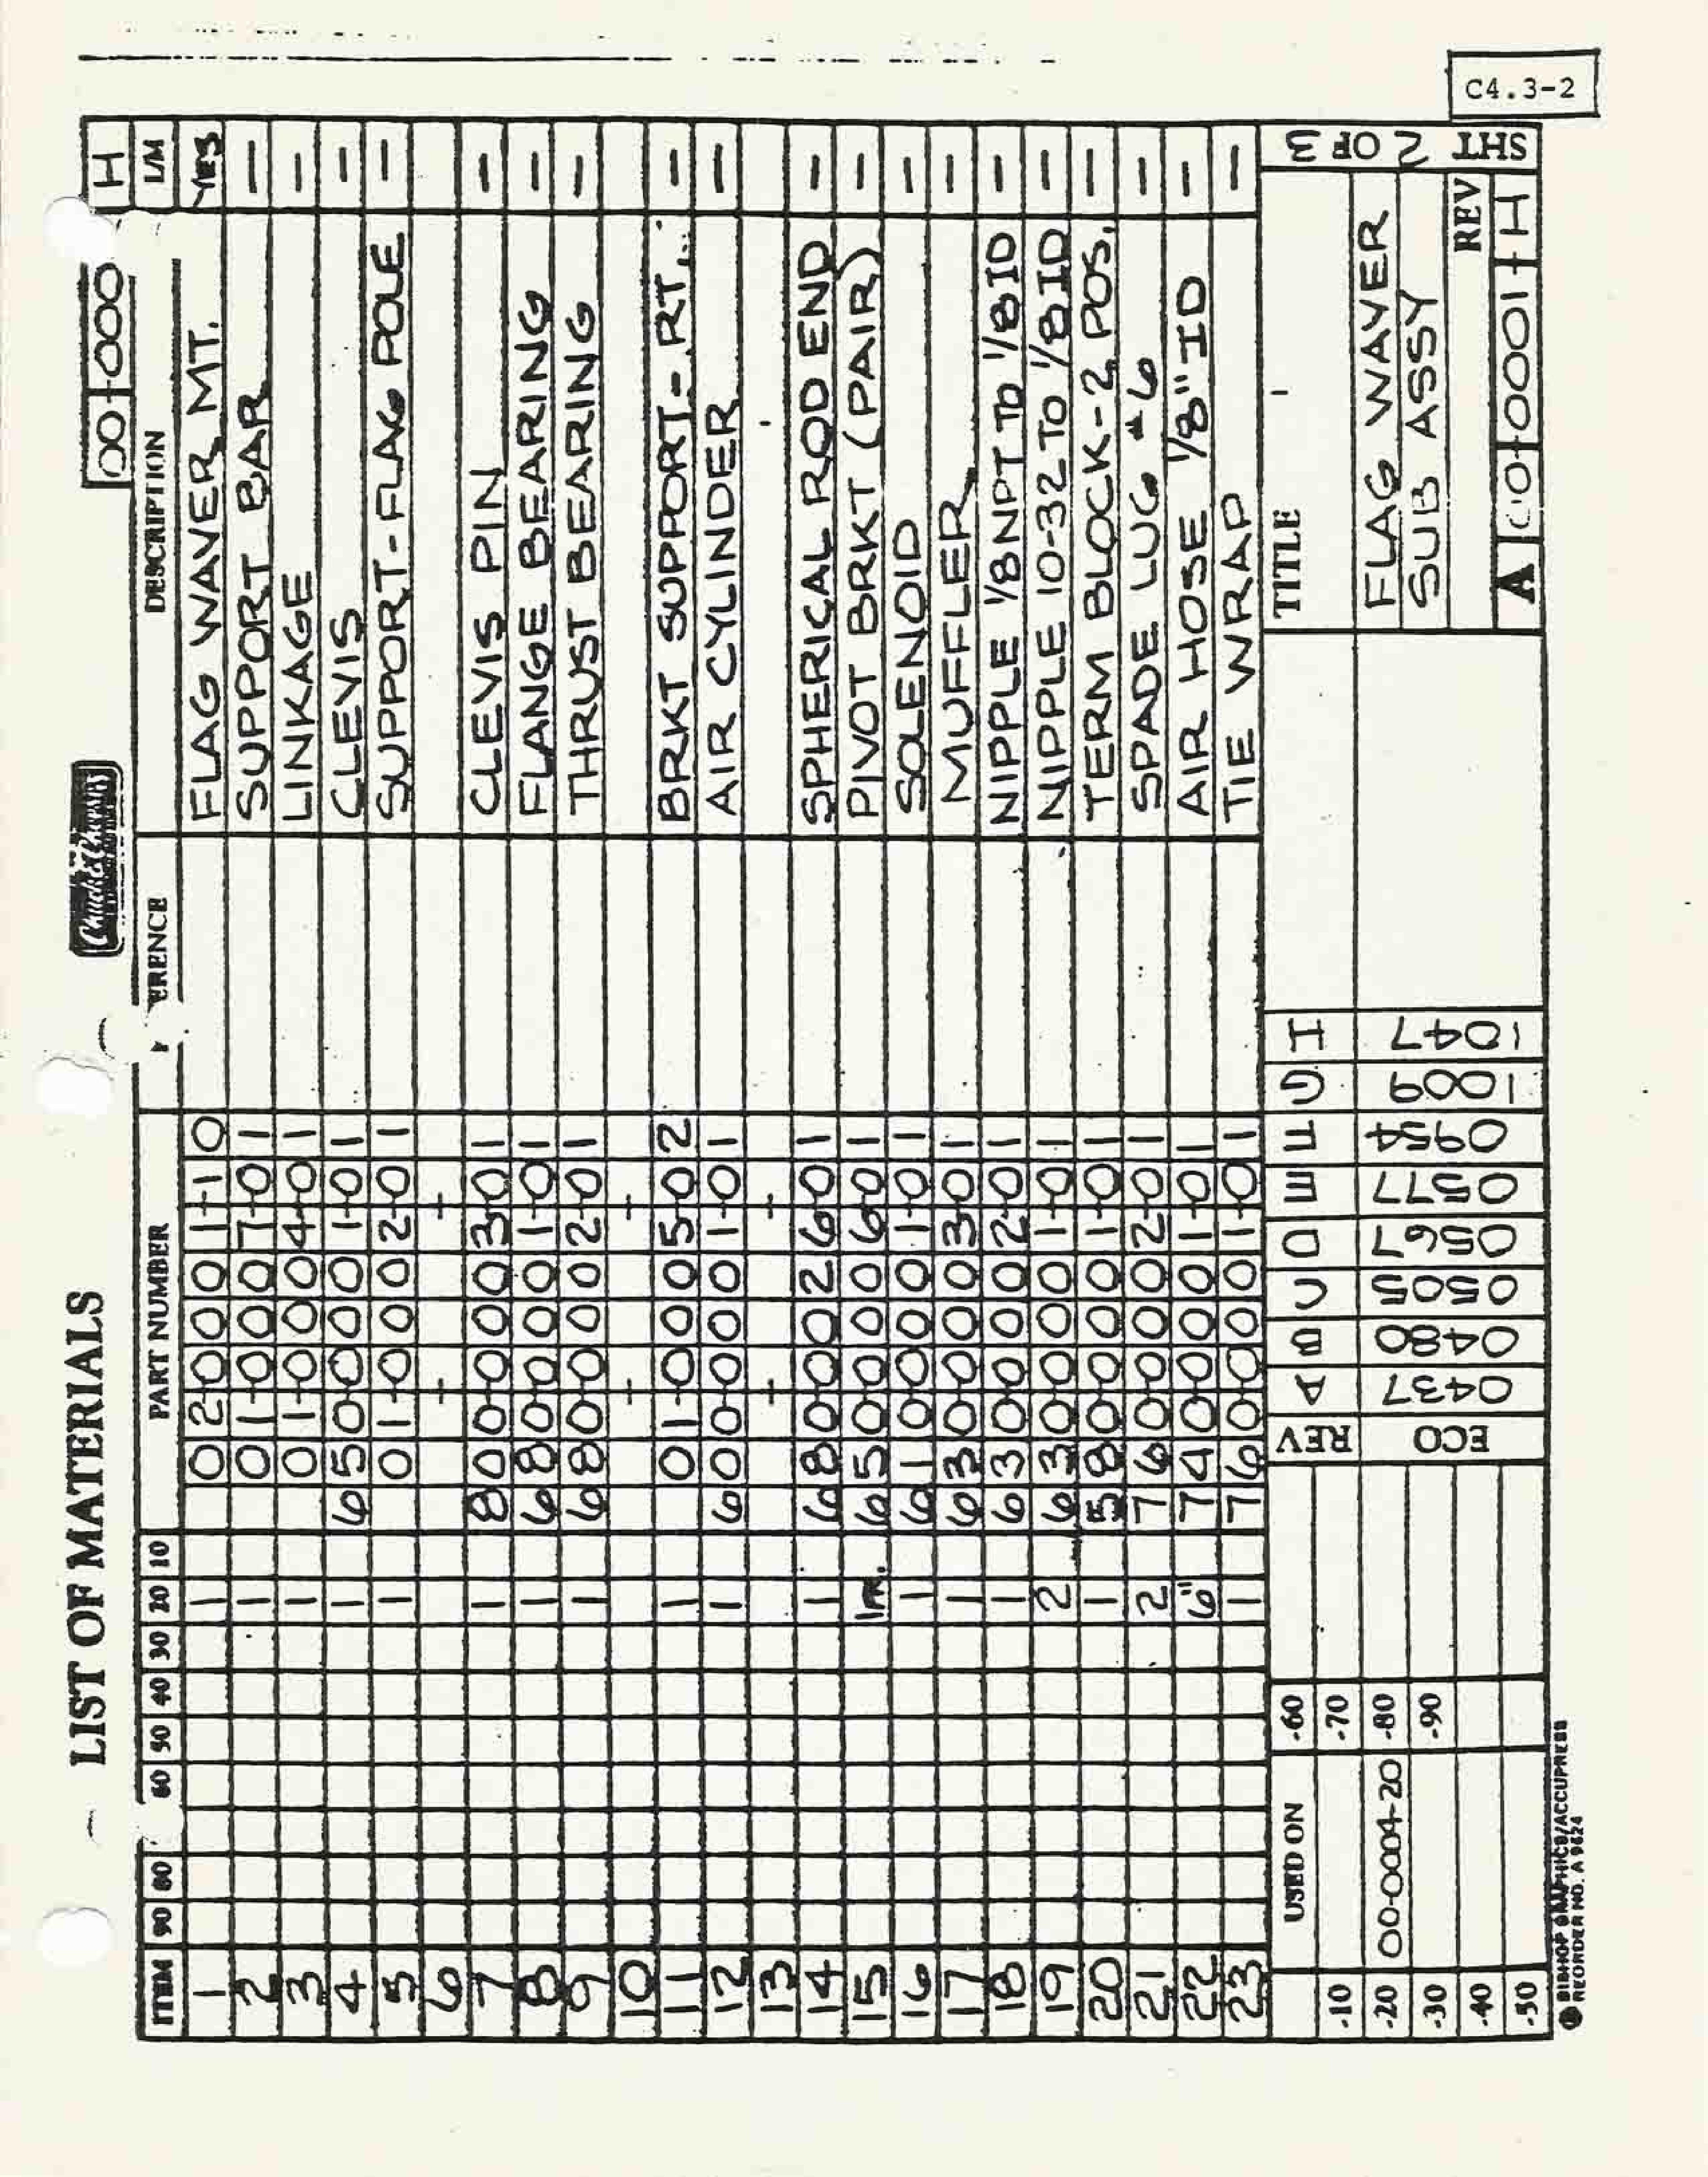 C4.3-2
LIST OF MATERIALS
00-000 H
ITEM 90 80 60 50 40 30 20 10 PART NUMBER ERENCE DESCRIPTION L/M
1 1 02-0001-10 FLAG WAVER MT. YES
2 1 01-0007-01 SUPPORT BAR —
3 1 01-0004-01 LINKAGE —
4 1 650-0001-01 CLEVIS —
5 1 01-0002-01 SUPPORT-FLAG POLE —
6 - -
7 1 800-0003-01 CLEVIS PIN —
8 1 680-0001-01 FLANGE BEARING —
9 1 680-0002-01 THRUST BEARING —
10 - -
11 1 01-0005-02 BRKT SUPPORT-RT. —
12 1 600-0001-01 AIR CYLINDER —
13 - -
14 1 680-0026-01 SPHERICAL ROD END —
15 1PR. 650-0006-01 PIVOT BRKT (PAIR) —
16 1 610-0001-01 SOLENOID —
17 1 630-0003-01 MUFFLER —
18 1 630-0002-01 NIPPLE 1/8 NPT TO 1/8 ID —
19 2 630-0001-01 NIPPLE 10-32 TO 1/8 ID —
20 1 580-0001-01 TERM BLOCK-2 POS. —
21 2 760-0002-01 SPADE LUG #6 —
22 6" 740-0001-01 AIR HOSE 1/8" ID —
23 1 760-0001-01 TIE WRAP —
USED ON
-10 -60
-20 00-0004-20 -70
-30 -80
-40 -90
-50
REV A B C D E F G H
ECO 0437 0480 0505 0567 0577 0954 1009 1047
TITLE
FLAG WAVER
SUB ASSY
REV
A 00-0001-H
SHT 2 OF 3
BISHOP GRAPHICS/ACCUPRESS
REORDER NO. A 9624